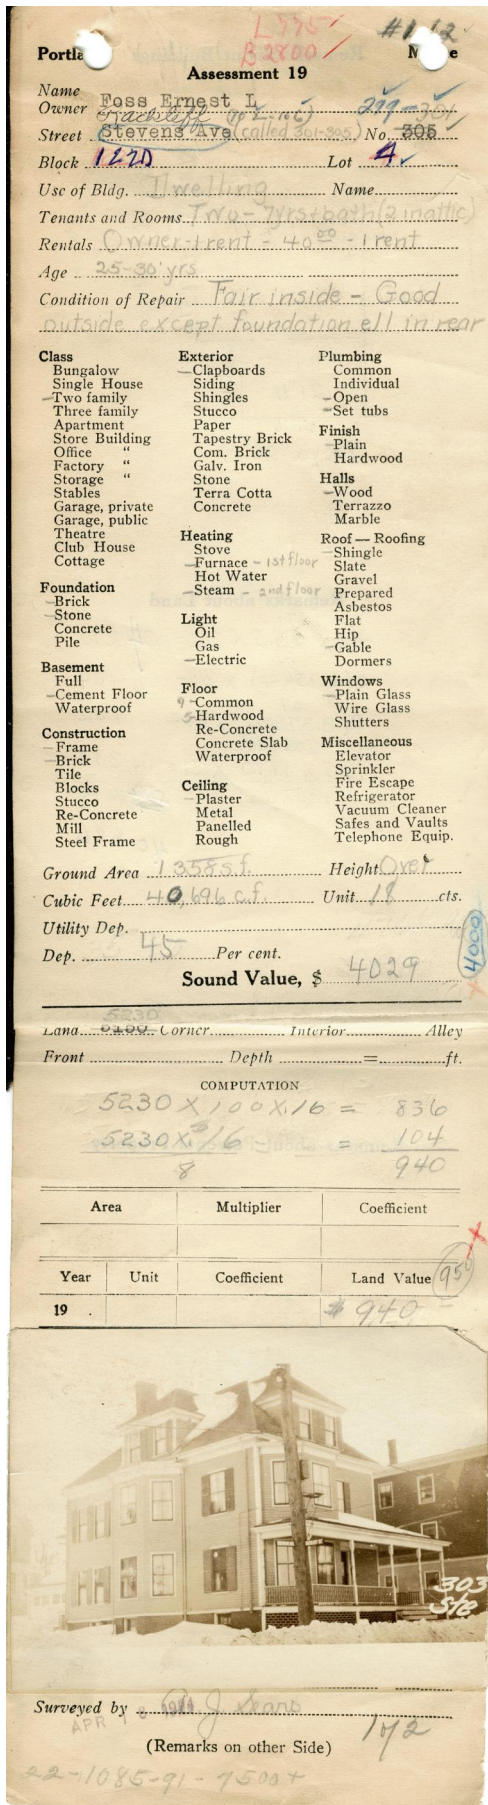 L 995
B 2800
Portla
M e
Assessment 19
Name
Owner Foss Ernest L
299-301
Street Stevens Ave (called 301-305) No. 305
Block 122D Lot 4
Use of Bldg. Dwelling Name
Tenants and Rooms Two - 7 yrs + bath (2 in attic)
Rentals Owner - 1 rent - 40 00 - 1 rent
Age 25-30 yrs
Condition of Repair Fair inside - Good
outside except foundation ell in rear
Class
Bungalow
Single House
- Two family
Three family
Apartment
Store Building
Office "
Factory "
Storage "
Stables
Garage, private
Garage, public
Theatre
Club House
Cottage
Foundation
- Brick
- Stone
Concrete
Pile
Basement
Full
- Cement Floor
Waterproof
Construction
- Frame
- Brick
Tile
Blocks
Stucco
Re-Concrete
Mill
Steel Frame
Exterior
- Clapboards
Siding
Shingles
Stucco
Paper
Tapestry Brick
Com. Brick
Galv. Iron
Stone
Terra Cotta
Concrete
Heating
Stove
- Furnace - 1st floor
Hot Water
- Steam - 2nd floor
Light
Oil
Gas
- Electric
Floor
9 - Common
5 - Hardwood
Re-Concrete
Concrete Slab
Waterproof
Ceiling
- Plaster
Metal
Panelled
Rough
Plumbing
Common
Individual
- Open
- Set tubs
Finish
- Plain
Hardwood
Halls
- Wood
Terrazzo
Marble
Roof — Roofing
- Shingle
Slate
Gravel
Prepared
Asbestos
Flat
Hip
- Gable
Dormers
Windows
- Plain Glass
Wire Glass
Shutters
Miscellaneous
Elevator
Sprinkler
Fire Escape
Refrigerator
Vacuum Cleaner
Safes and Vaults
Telephone Equip.
Ground Area 1358 s.f. Height Over
Cubic Feet 40,696 c.f. Unit 18 cts.
Utility Dep.
Dep. 45 Per cent.
4000
Sound Value, $ 4029
5230
Land 5180 Corner Interior Alley
Front Depth = ft.
COMPUTATION
5230 X 100 X .16 = 836
5230 X 5/8 16 = 104
940
Area Multiplier Coefficient
Year Unit Coefficient Land Value 950
19 . $ 940
303
Ste
Surveyed by J Sears
APR 8
1 of 2
(Remarks on other Side)
22-1085-91-7500+